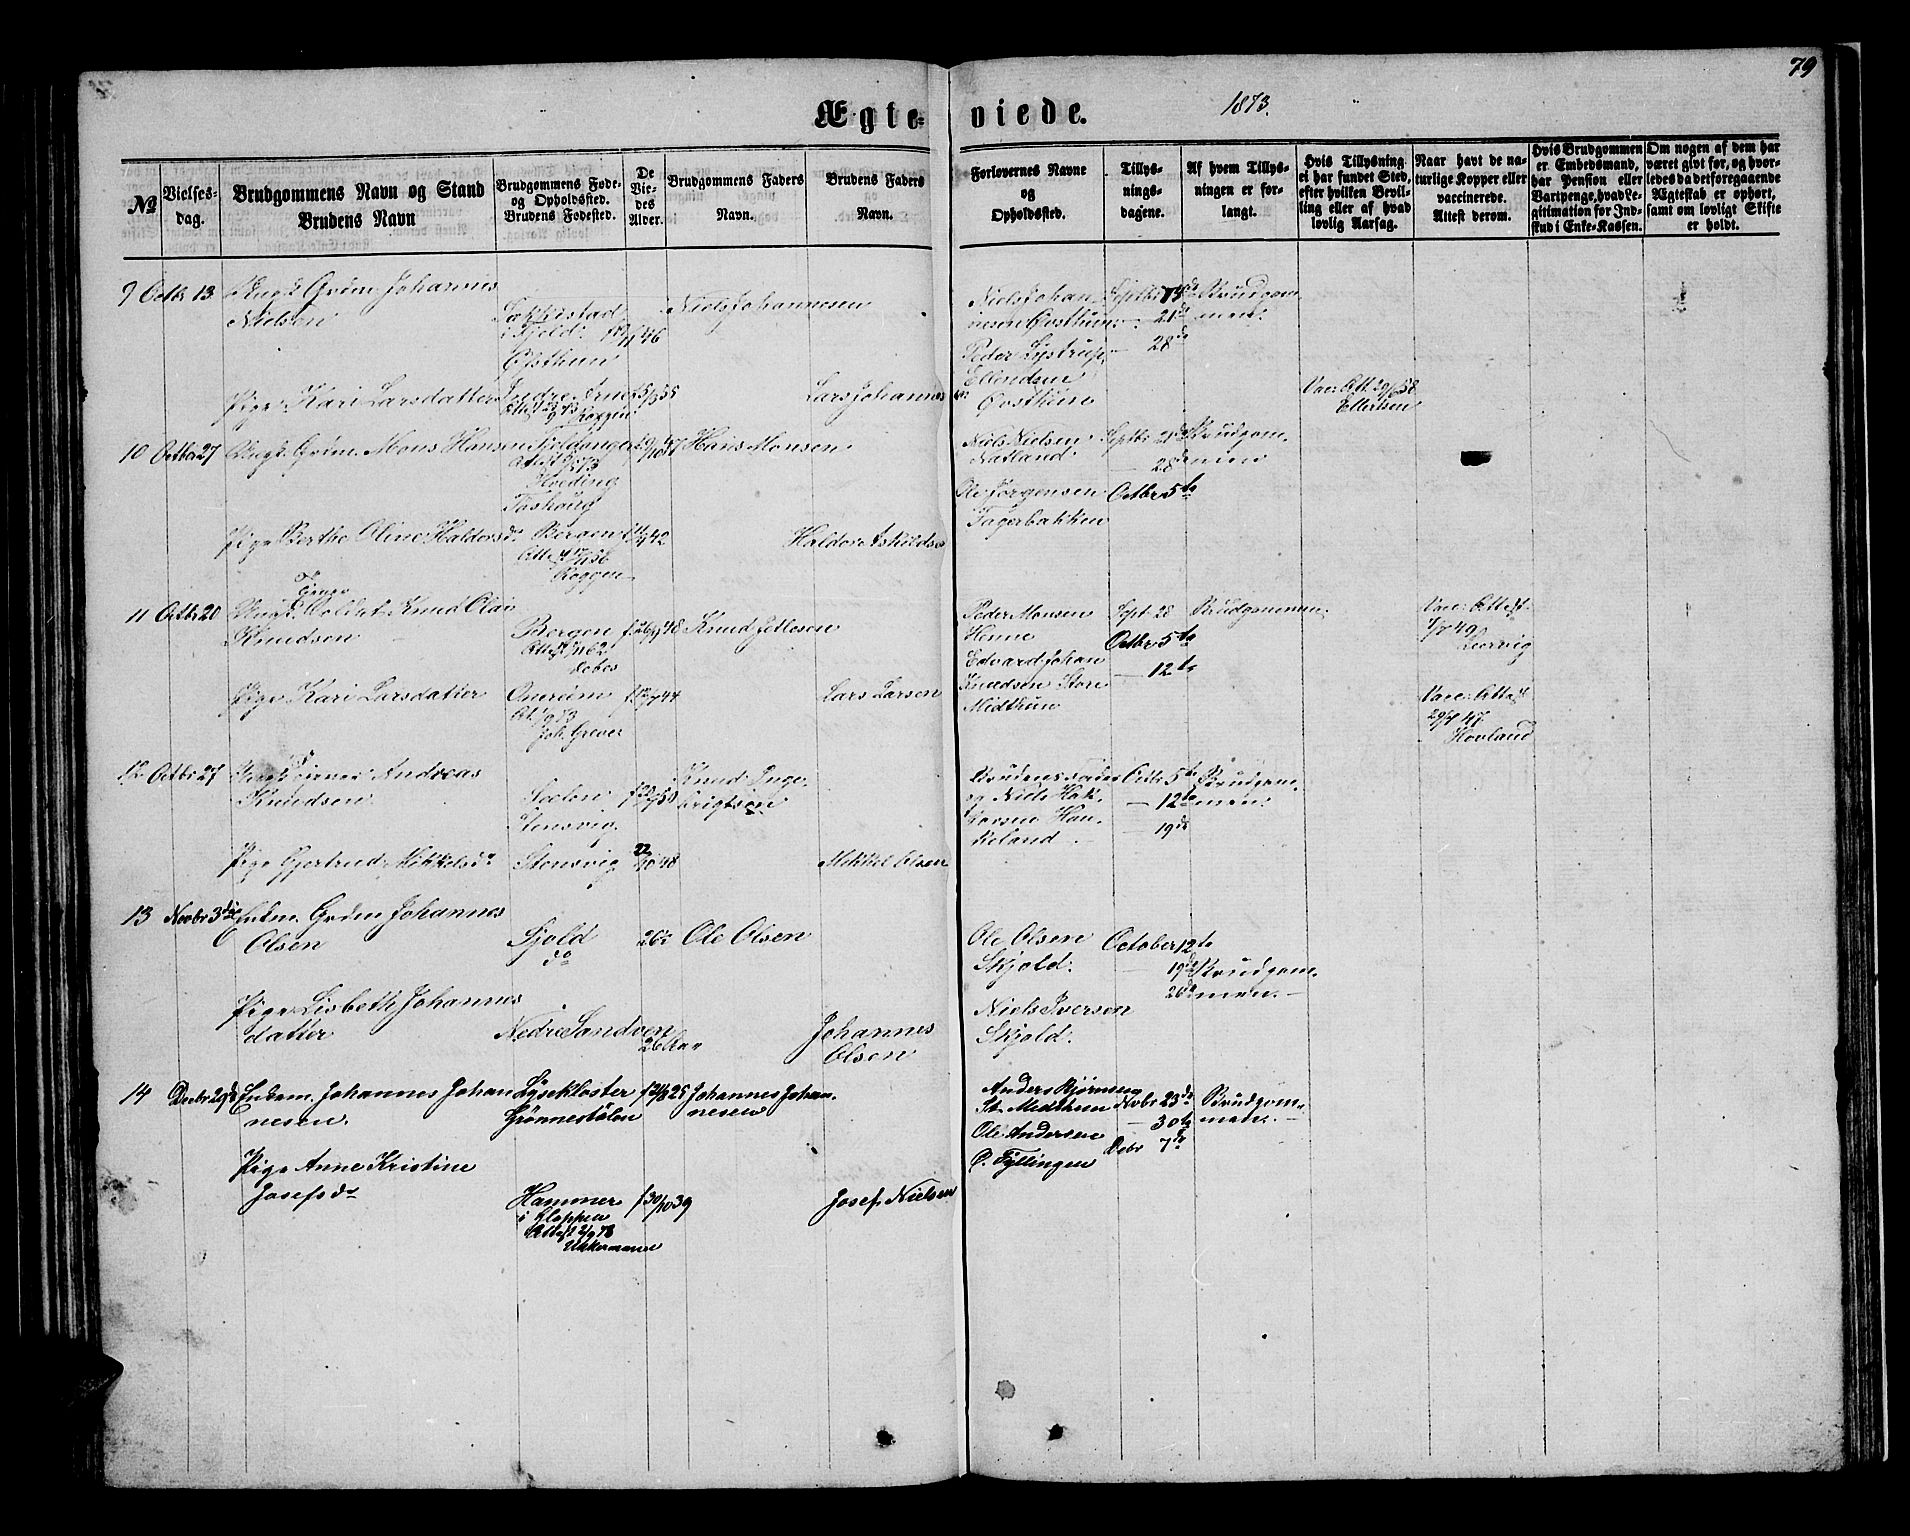 79
Ægte-viede.
1873.
№
Vielses-
dag.
Brudgommens Navn og Stand
Brudens Navn
Brudgommens Føde-
og Opholdssted.
Brudens Fødested.
De
Vie-
des
Alder.
Brudgommens Faders
Navn.
Brudens Faders
Navn.
Forlovernes Navne
og
Opholdssted.
Tillys-
nings-
dagene.
Af hvem Tillys-
ningen er for-
langt.
Hvis Tillysning
ei har fundet Sted,
efter hvilken Bevil-
ling eller af hvad
lovlig Aarsag.
Naar havt de na-
turlige Kopper eller
vaccinerede.
Attest derom.
Hvis Brudgommen
er Embedsmand,
har Pension eller
Vartpenge, hvad Le-
gitimation for Ind-
skud i Enke-Kassen.
Om nogen af dem har
været givt før, og hvor-
ledes da det foregaaende
Ægteskab er ophørt,
samt om lovligt Skifte
er holdt.
9 Octbr 13 Ungk. Grdm. Johannes
Nielsen
i Fjeld. 46
Østhun
Niels Johannesen
Niels Johan-
nesen Østhun
Peder Lystrup
Ellendsen
Østhun
Septbr 14de
21de
28de
Brudgom-
men.
Pige Kari Larsdatter Indre Arne 55
Roggen
Lars Johannes
Vac: Att. 29/6 58
Ellertsen
10 Octbr 27 Ungk. Grdm. Mons Hansen Fjeldanger 47 Hans Monsen
Hveding
Toshaug
Niels Nielsen
Natland
Ole Jørgensen
Fagerbakken
Septbr 21de
28de
Octbr 5te
Brudgom-
men
Pige Berthe Oline Haldorsdr Bergen 42
Roggen
Haldor Askildsen
11 Octbr 20 Ungk. Soldat Knud Olai
Knudsen
Bergen 48
Debes
Knud Jetlesen
Peder Monsen
Henne
Edvard Johan
Knudsen Store
Midthun
Sept 28
Octbr 5te
12te
Brudgommen.
Vacc: Attest
49
Leervig
Pige Kari Larsdatter 44
Joh. Grever
Lars Larsen
Vacc: Attest
47
Hovland
12 Octbr 27 Andreas
Knudsen
Stensvig
Knud Inge-
brigtsen
Brudens Fader
og Niels Hak-
Hau-
keland
Octbr 5te
12te
19de
Brudgom-
men.
Pige Gjertrud Mikkelsdr Stensvig 22/10 48
Mikkel Olsen
13 Novbr 3die Enkm. Grdm Johannes
Olsen
Sjold
do
Ole Olsen
Ole Olsen
Skjold.
Niels Iversen
Skjold.
October 12te
19de
26de
Brudgom-
men.
Pige Lisbeth Johannes
datter
Nedre Sandven
26 Aar
Johannes
Olsen
14 Decbr 29de Enkem. Johannes Johan
nesen.
Lysekloster
Grønnestølen
Johannes Johan-
nesen
Anders Bjørnsen
St. Midthun
Ole Andersen
Ø. Fyllingen
Novbr 23de
30te
Debr 7de
Brudgom-
men.
Pige Anne Kristine
Josefsdr
Hammer f 30/10 39
i Kloppen
Attest 2/9 73
Ukkermann
Josef Nielsen